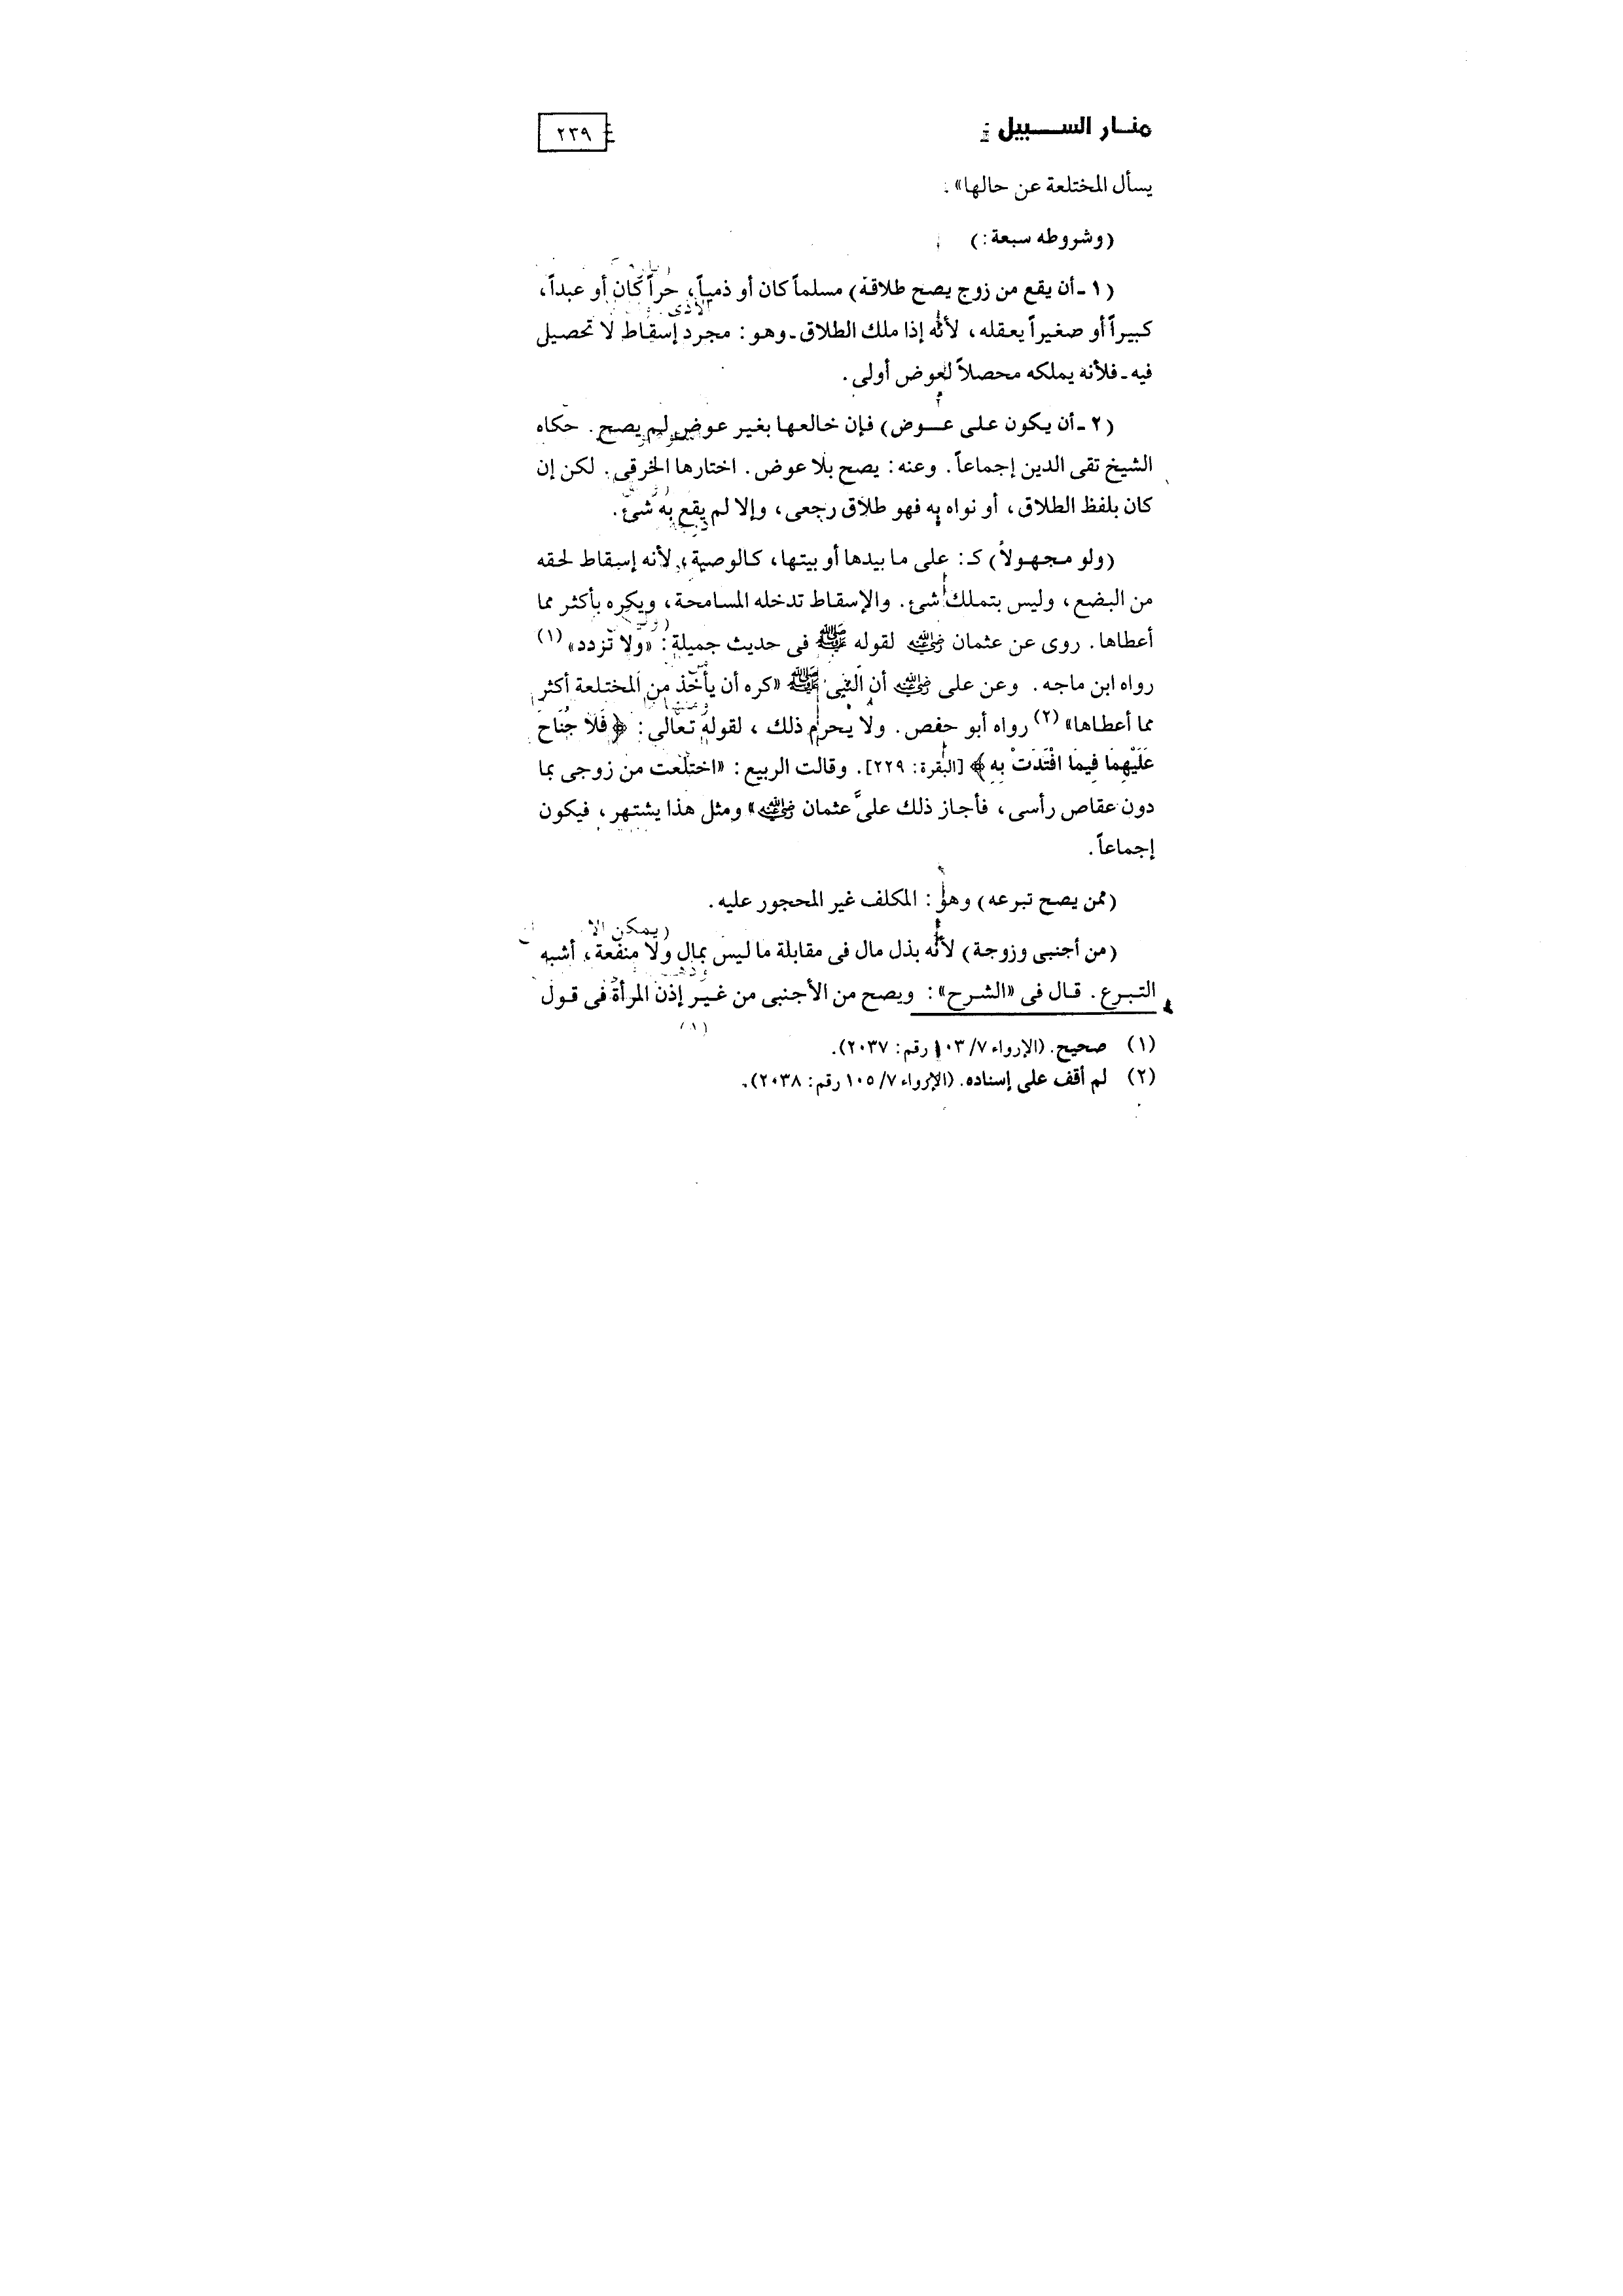 منار السبيل
٢٣٩
يسأل المختلعة عن حالها».
(وشروطه سبعة:)
(١ - أن يقع من زوج يصح طلاقه) مسلماً كان أو ذمياً، حُراً كان أو عبداً،
كبيراً أو صغيراً يعقله، لأنه إذا ملك الطلاق - وهو: مجرد إسقاط لا تحصيل
فيه - فلأنه يملكه محصلاً لعوض أولى.
(٢ - أن يكون على عوض) فإن خالعها بغير عوض لم يصح. حكاه
الشيخ تقى الدين إجماعاً. وعنه: يصح بلا عوض. اختارها الخرقى. لكن إن
كان بلفظ الطلاق، أو نواه به فهو طلاق رجعى، وإلا لم يقع به شئ.
(ولو مجهولاً) كـ: على ما بيدها أو بيتها، كالوصية، لأنه إسقاط لحقه
من البضع، وليس بتملك شئ. والإسقاط تدخله المسامحة، ويكره بأكثر مما
أعطاها. روى عن عثمان رضي الله عنه لقوله ﷺ فى حديث جميلة: «ولا تزدد» (١)
رواه ابن ماجه. وعن على رضي الله عنه أن النبى ﷺ «كره أن يأخذ من المختلعة أكثر
مما أعطاها» (٢) رواه أبو حفص. ولا يحرم ذلك، لقوله تعالى: ﴿فَلَا جُنَاحَ
عَلَيْهِمَا فِيمَا افْتَدَتْ بِهِ﴾ [البقرة: ٢٢٩]. وقالت الربيع: «اختلعت من زوجى بما
دون عقاص رأسى، فأجاز ذلك علىَّ عثمان رضي الله عنه» ومثل هذا يشتهر، فيكون
إجماعاً.
(ممن يصح تبرعه) وهو: المكلف غير المحجور عليه.
(من أجنبى وزوجة) لأنه بذل مال فى مقابلة ما ليس بمال ولا منفعة، أشبه
التبرع. قال فى «الشرح»: ويصح من الأجنبى من غير إذن المرأة فى قول
(١) صحيح. (الإرواء ٧/ ١٠٣ رقم: ٢٠٣٧).
(٢) لم أقف على إسناده. (الإرواء ٧/ ١٠٥ رقم: ٢٠٣٨).